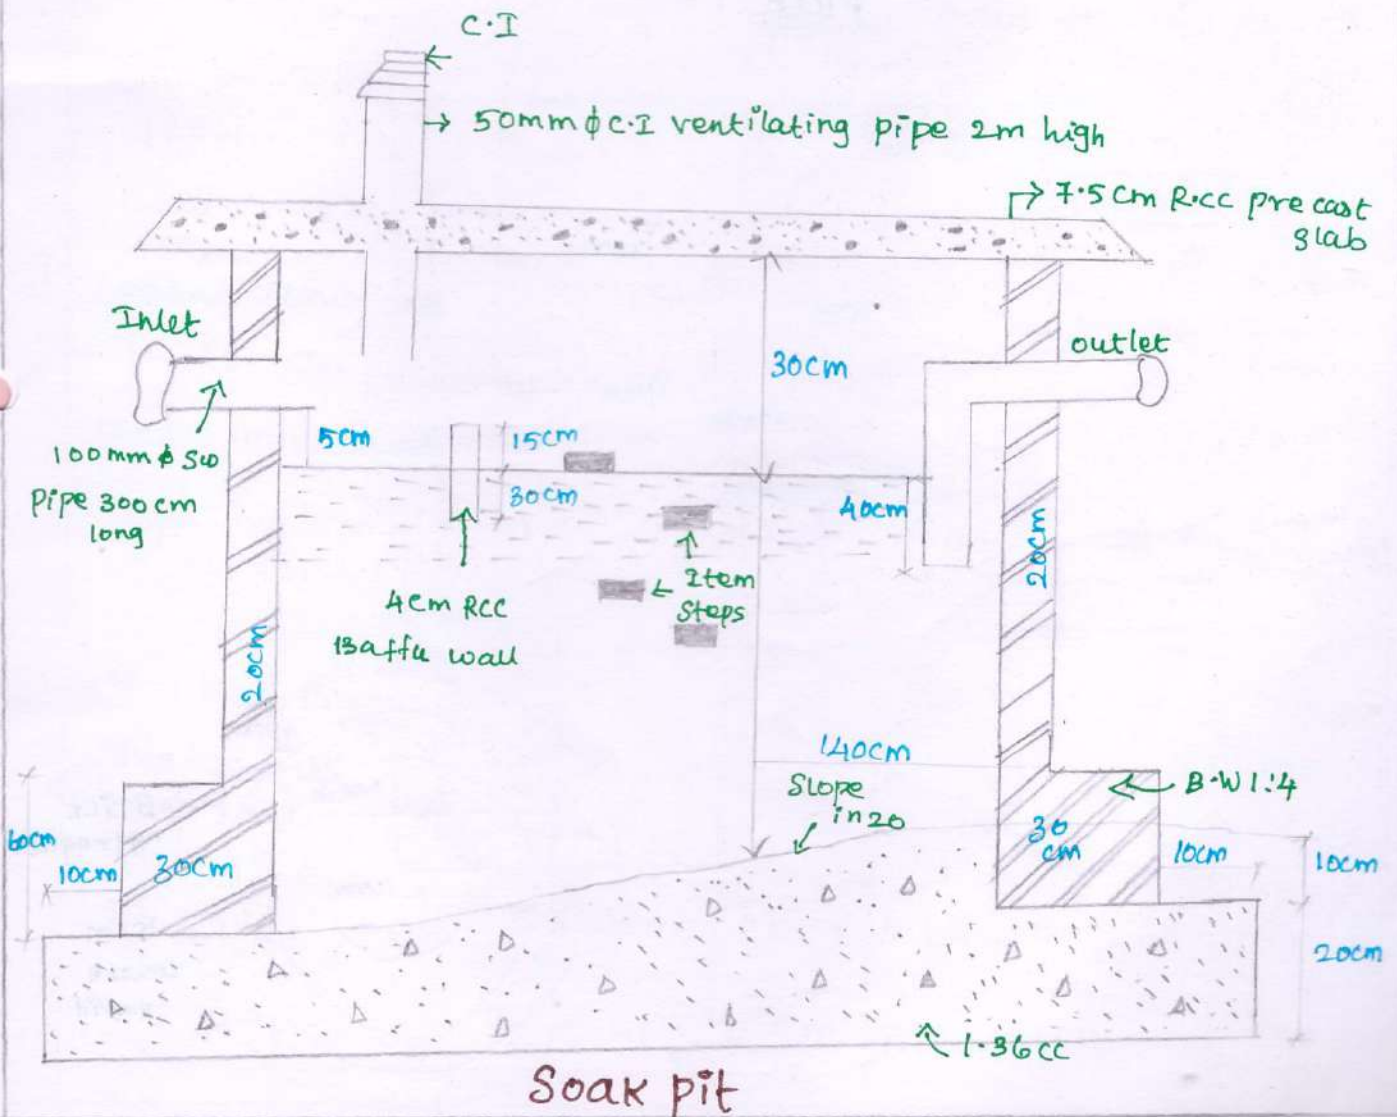 C.I
50mm ϕ C.I ventilating pipe 2m high
7.5cm R.cc pre cast
slab
Inlet
outlet
30cm
5cm
15cm
100mm ϕ SW
Pipe 300cm
long
30cm
40cm
20cm
Item
Steps
4cm RCC
Baffle wall
20cm
140cm
Slope
in 20
B.W 1:4
60cm
10cm
30cm
30
cm
10cm
10cm
20cm
1.36cc
Soak pit